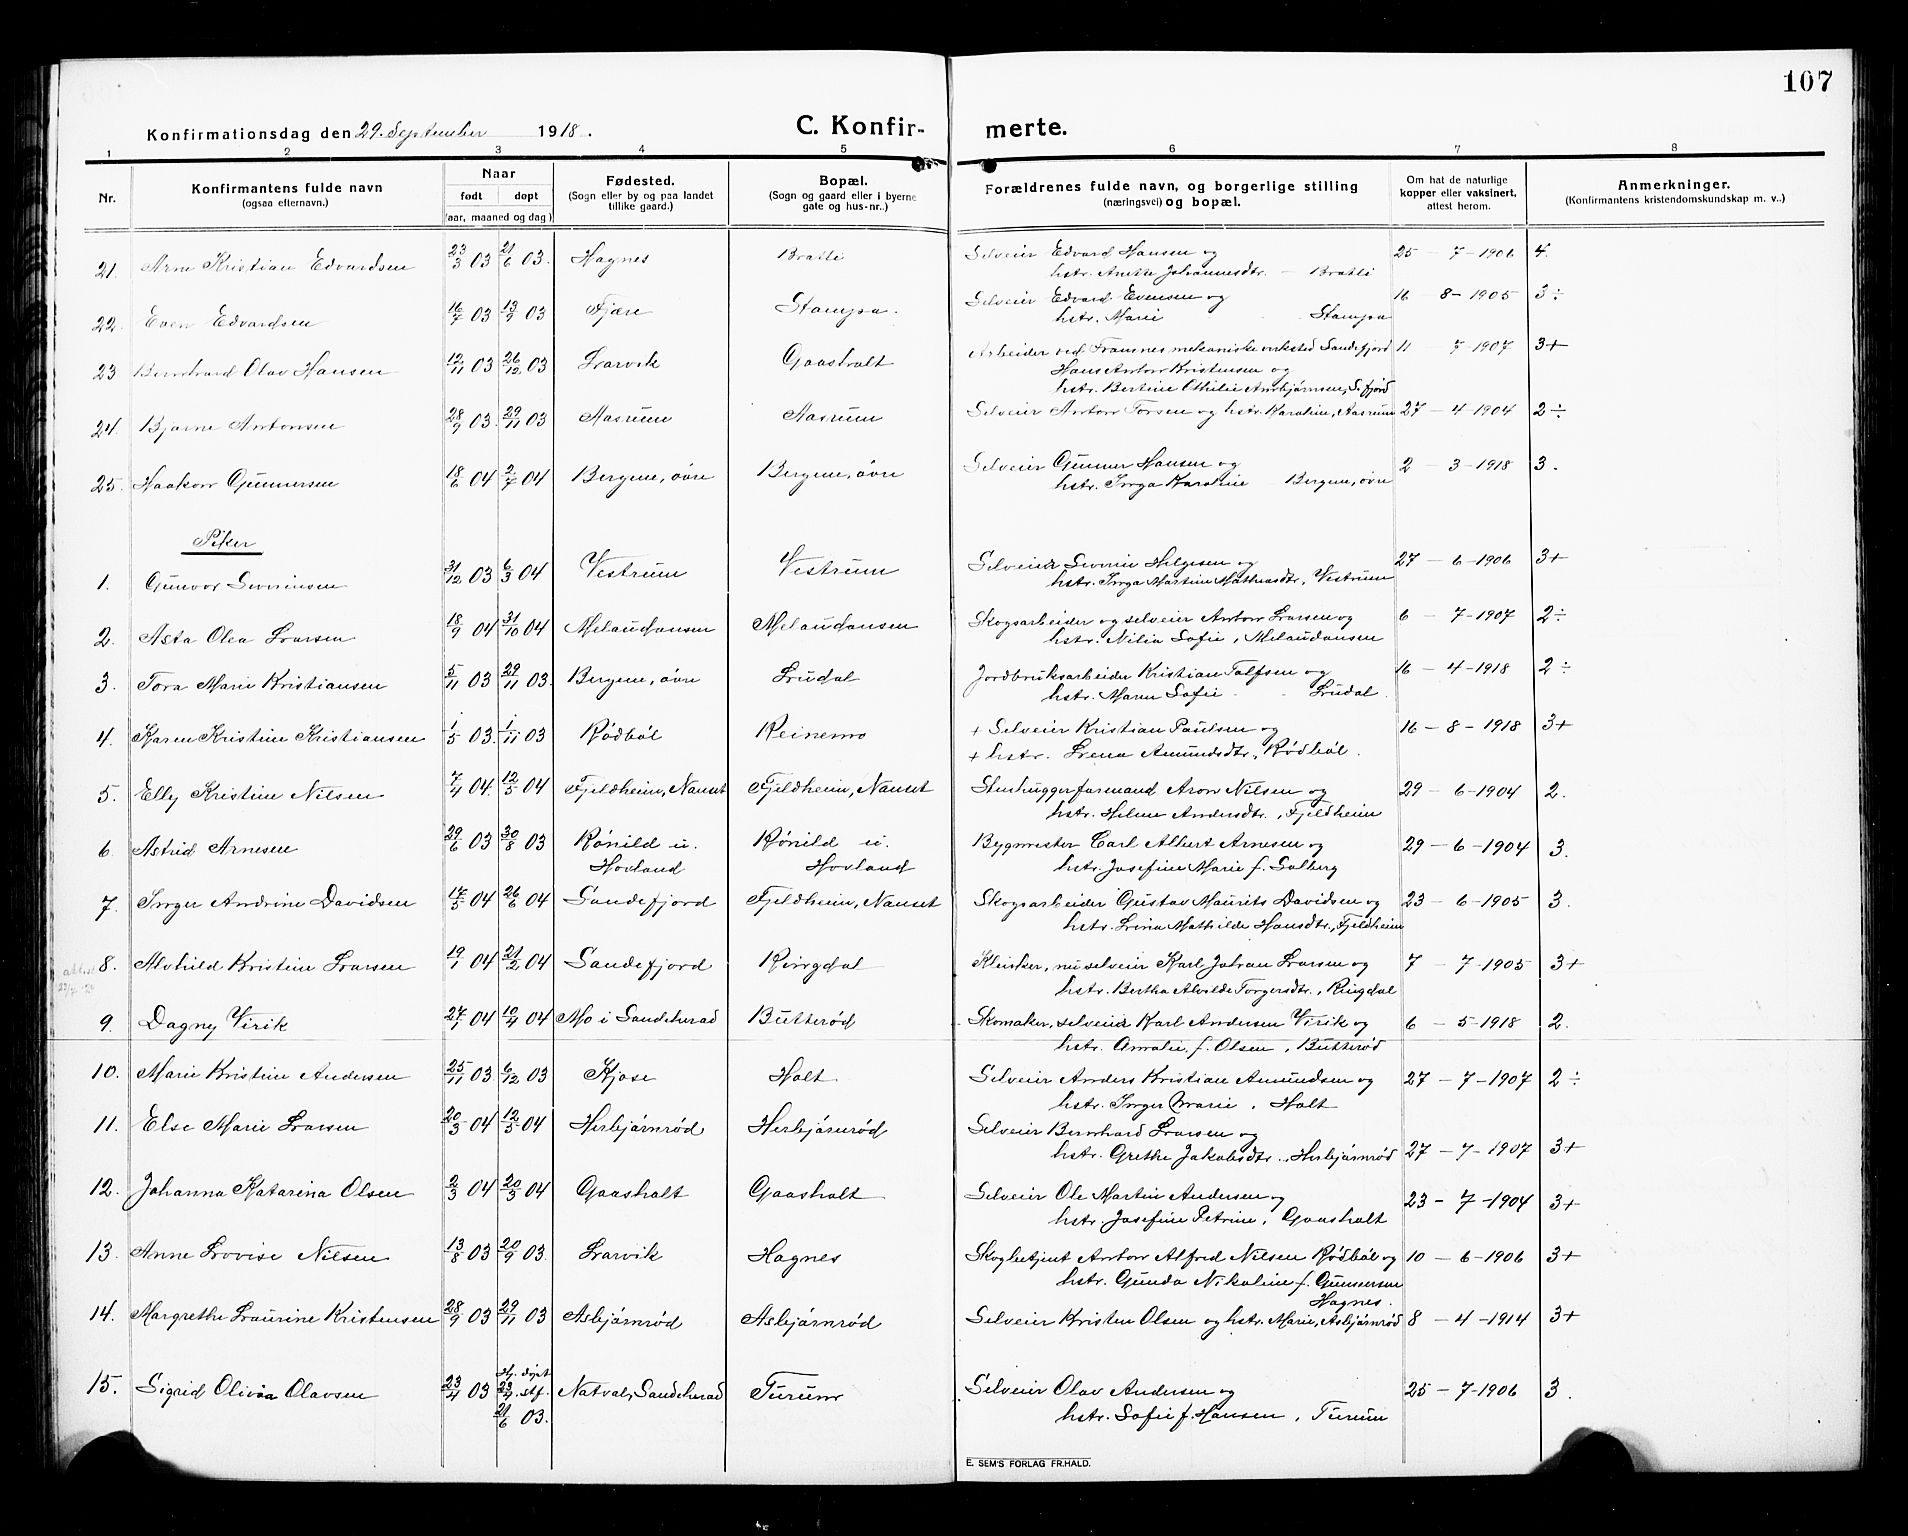 107
Konfirmationsdag den 29. September 1918.
C. Konfir-merte.
1 2 3 4 5 6 7 8
Nr.
Konfirmantens fulde navn
(ogsaa efternavn.)
Naar
født døpt
(aar, maaned og dag)
Fødested.
(Sogn eller by og paa landet
tillike gaard.)
Bopæl.
(Sogn og gaard eller i byerne
gate og hus-nr.)
Forældrenes fulde navn, og borgerlige stilling
(næringsvei) og bopæl.
Om hat de naturlige
kopper eller vaksinert,
attest herom.
Anmerkninger.
(Konfirmantens kristendomskundskap m. v..)
21. Arne Kristian Edvardsen 23/3 03 21/6 03. Hagnes Bratli Selveier Edvard Hansen og 25 - 7 - 1906 4.
hstr. Anette Johannesdtr. - Bratli
22. Even Edvardsen 16/7 03 13/9 03 Fjære Stampa. Selveier Edvard Evensen og 16 8 - 1905 3÷
hstr. Marie Stampa
23 Bernhard Olav Hansen 12/11 03 26/12 03 Larvik Gaasholt Arbeider ved Framnes mekaniske verksted Sandefjord 11 7 - 1907 3+
Hans Anton Kristensen og
hstr. Bertine Othilie Ambjørnsen, S.fjord
24. Bjarne Antonsen 28/9 03. 29/11 03 Aasrum Aasrum Selveier Anton Torsen og hstr. Karoline, Aasrum 27 - 4 - 1904 2÷
25. Haakon Gunnersen 18/6 04 2/7 04 Bergene, övre Bergene, övre Selveier Gunner Hansen og 2 - 3 - 1918 3.
hstr. Inga Karoline - Bergene, övre
Piker
1. Gunvor Severinsen 31/12 03 6/3 04 Vestrum Vestrum Selveier Severin Helgesen og 27 - 6 - 1906 3+
hstr. Inga Martine Mathiasdtr, Vestrum
2. Asta Olea Larsen 18/9 04 31/10 04 Melaudansen Melaudansen Skogsarbeider og selveier Anton Larsen og 6 - 7 - 1907 2÷
hstr. Nilia Sofie, Melaudansen
3. Tora Marie Kristiansen 5/11 03 29/11 03. Bergene, övre Ludal Jordbruksarbeider Kristian Tolfsen og 16 - 4 - 1918 2÷
hstr. Maren Sofie Ludal.
4. Karen Kristine Kristiansen 1/5 03. 1/11 03 Rødbøl Reinemo + Selveier Kristian Paulsen og 16 - 8 - 1918 3+
+ hstr. Lena Amundsdtr, Rødbøl.
5. Elly Kristine Nilsen 7/4 04. 12/5 04 Fjeldheim, Nanset Fjeldheim, Nanset Stenhuggerformand Aron Nilsen og 29 - 6 - 1904 2.
hstr. Helene Andersdtr., Fjeldheim
6. Astrid Arnesen 29/6 03 30/8 03 Rønild u. Rønild u. Bygmester Carl Albert Arnesen og 29 - 6 - 1904 3.
Hovland Hovland hstr. Josefine Marie f. Solberg
7. Inger Andrine Davidsen 17/5 04 26/6 04 Sandefjord Fjeldheim, Nanset Skogsarbeider Gustav Maurits Davidsen og 23 - 6 - 1905 3.
hstr. Lina Mathilde Hansdtr., Fjeldheim
8. Alvhild Kristine Larsen 19/1 04 21/2 04 Sandefjord Ringdal Klinker, nu selveier Karl Johan Larsen og 7 - 7 - 1905 3+
hstr. Bertha Alvilde Torgersdtr., Ringdal
9. Dagny Virik 27/1 04 10/4 04 Mo i Sandeherad Butterød Skomaker, selveier Karl Andersen Virik og 6 - 5 - 1918 2.
hstr. Amalie, f. Olsen, Butterød
10. Marie Kristine Andersen 25/11 03 6/12 03 Kjose Holt Selveier Anders Kristian Amundsen og 27 - 7 - 1907 2÷
hstr. Inger Marie, Holt
11. Else Marie Larsen 20/3 04 12/5 04 Herbjørnrød Herbjørnrød Selveier Bernhard Larsen og
hstr. Grethe Jakobsdtr., Herbjørnrød 27 - 7 - 1907 3+
12. Johanna Katarina Olsen 2/3 04 20/3 04 Gaasholt Gaasholt Selveier Ole Martin Andersen og 23 - 7 - 1904 3+
hstr. Josefine Petrine, Gaasholt
13. Anne Lovise Nilsen 13/8 03 20/9 03. Larvik Hagnes Skogbetjent Anton Alfred Nilsen Rødbøl og 10 - 6 - 1906 3+
hstr. Gunda Nikoline f. Gunnersen
Hagnes.
14. Margrethe Laurine Kristensen 28/9 03 29/11 03 Asbjørnrød Asbjørnrød Selveier Kristen Olsen og hstr. Marie, Asbjørnrød 8 - 4 - 1914 3+
15. Sigrid Olivia Olavsen 23/4 03 Hj. døpt 23/4. stf. 21/6 03. Natval, Sandeherad Turum Selveier Olav Andersen og 25 - 7 - 1906 3.
hstr. Sofie f. Hansen, Turum
E. SEM'S FORLAG FR.HALD.